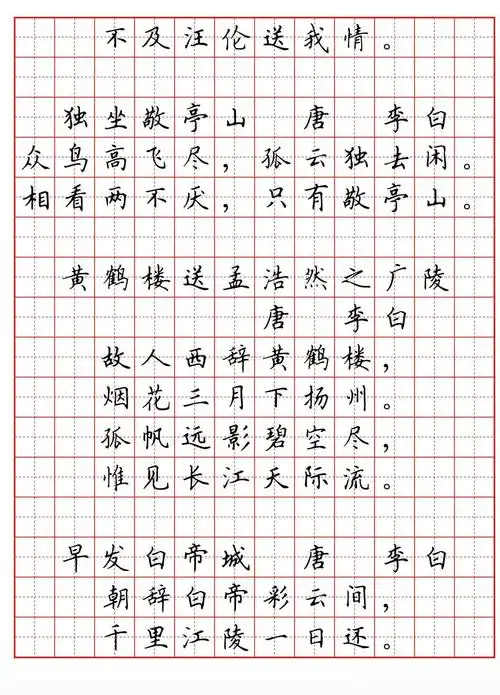 不及汪伦送我情。
独坐敬亭山 唐 李白
众鸟高飞尽，孤云独去闲。
相看两不厌，只有敬亭山。
黄鹤楼送孟浩然之广陵
唐 李白
故人西辞黄鹤楼，
烟花三月下扬州。
孤帆远影碧空尽，
惟见长江天际流。
早发白帝城 唐 李白
朝辞白帝彩云间，
千里江陵一日还。